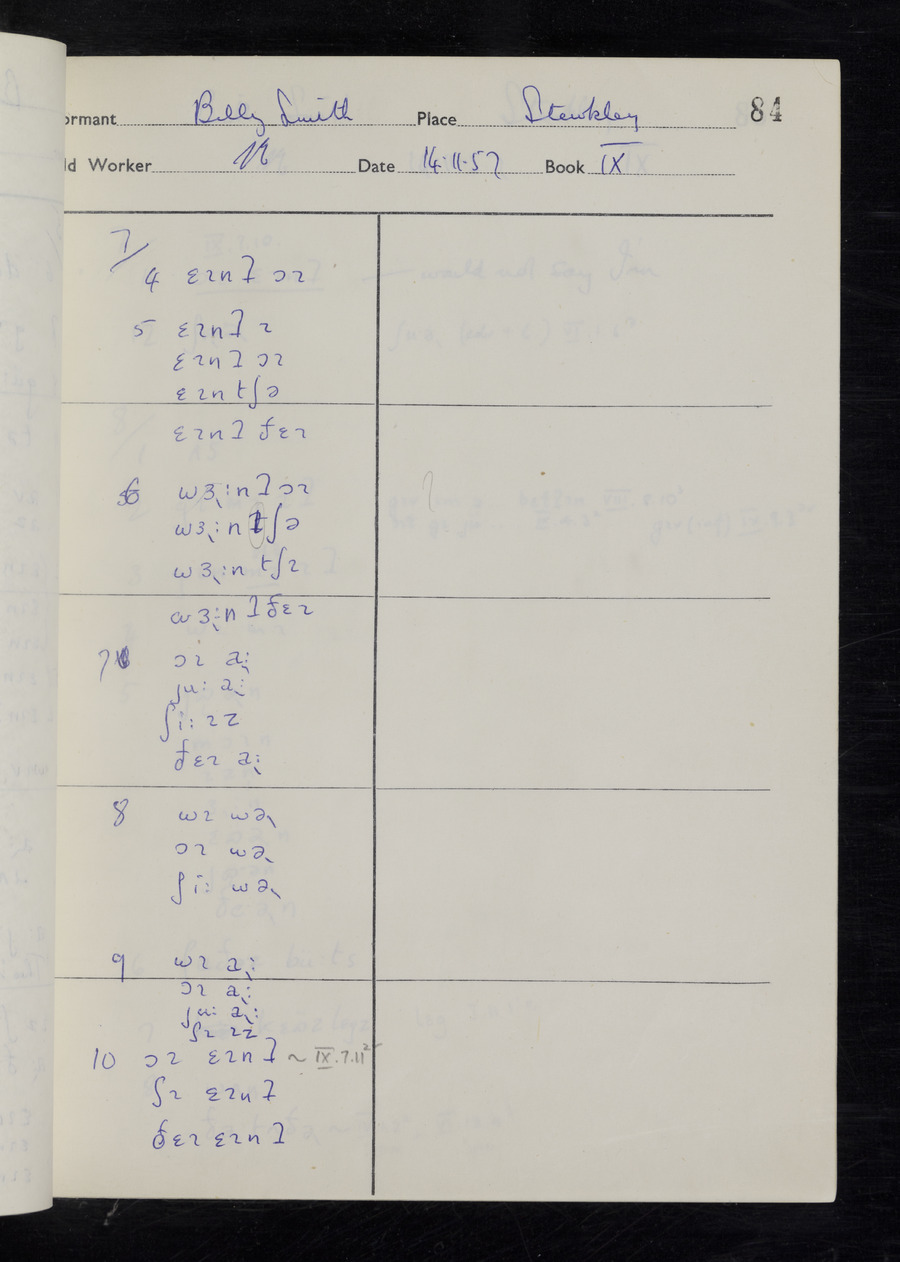 ormant Billy Smith Place Stewkley 84
ld Worker Date 14·11·57 Book IX
7/
4 ɛɪnʔ ɔɪ
5 ɛɪnʔ ɪ
ɛɪnʔ ɔɪ
ɛɪn tʃə
ɛɪnʔ ðɛɪ
6 wɜ˞:nʔ ɔɪ
wɜ˞:n tʃə
wɜ˞:n tʃɪ
wɜ˞:nʔ ðɛɪ
7 ɔɪ a:
ju: a:
ʃi: ɪz
ðɛɪ a:
8 wɪ wə˞
ɔɪ wə˞
ʃi: wə˞
9 wɪ a:
ɔɪ a:
ju: a:
ʃɪ ɪz
10 ɔɪ ɛɪnʔ ~ IX.7.11²
ʃɪ ɛɪnʔ
ðɛɪ ɛɪnʔ